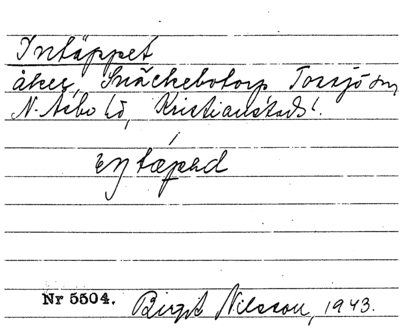 Intäppet
åker, Snäckebotorp Tossjö sn,
N. Åsbo hd, Kristianstads l.
Nr 5504. Birgit Nilsson, 1943.